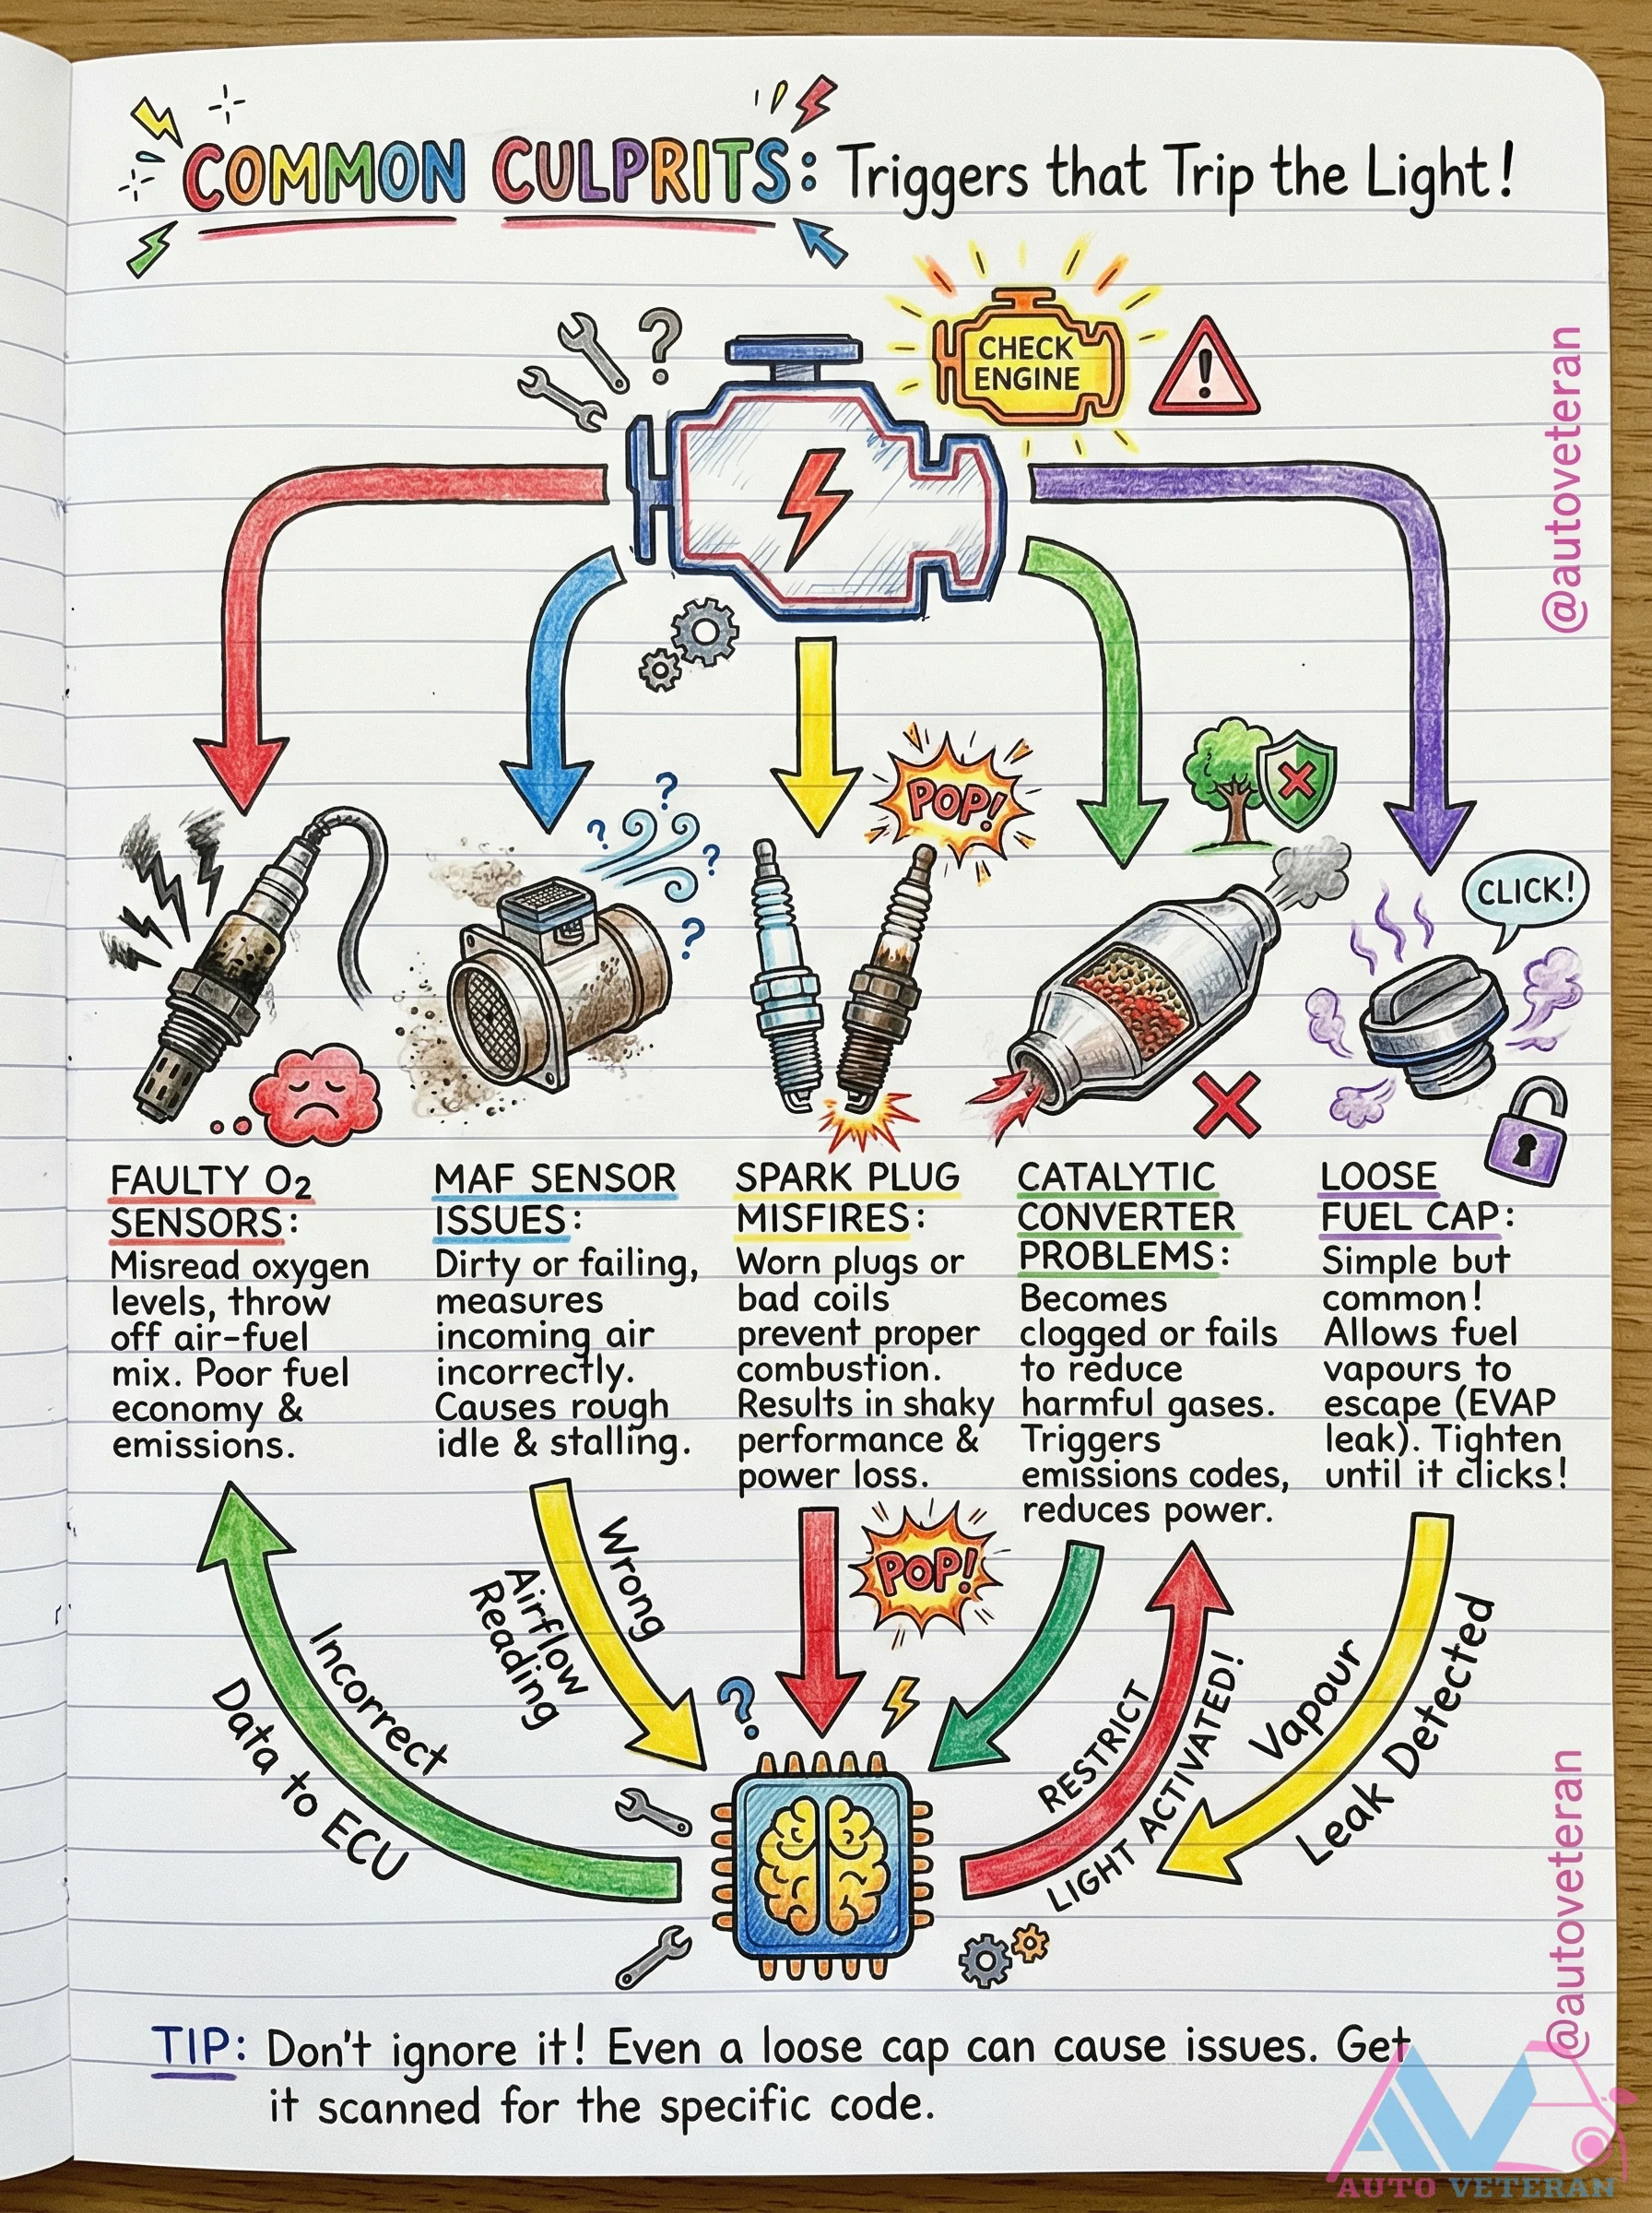 COMMON CULPRITS: Triggers that Trip the Light!
CHECK
ENGINE
!
?
@autoveteran
POP!
?
?
?
?
CLICK!
FAULTY O₂
SENSORS:
Misread oxygen
levels, throw
off air-fuel
mix. Poor fuel
economy &
emissions.
MAF SENSOR
ISSUES:
Dirty or failing,
measures
incoming air
incorrectly.
Causes rough
idle & stalling.
SPARK PLUG
MISFIRES:
Worn plugs or
bad coils
prevent proper
combustion.
Results in shaky
performance &
power loss.
CATALYTIC
CONVERTER
PROBLEMS:
Becomes
clogged or fails
to reduce
harmful gases.
Triggers
emissions codes,
reduces power.
LOOSE
FUEL CAP:
Simple but
common!
Allows fuel
vapours to
escape (EVAP
leak). Tighten
until it clicks!
Incorrect
Data to ECU
Wrong
Airflow
Reading
POP!
?
RESTRICT
LIGHT ACTIVATED!
Vapour
Leak Detected
@autoveteran
TIP: Don't ignore it! Even a loose cap can cause issues. Get
it scanned for the specific code.
AV
AUTO VETERAN